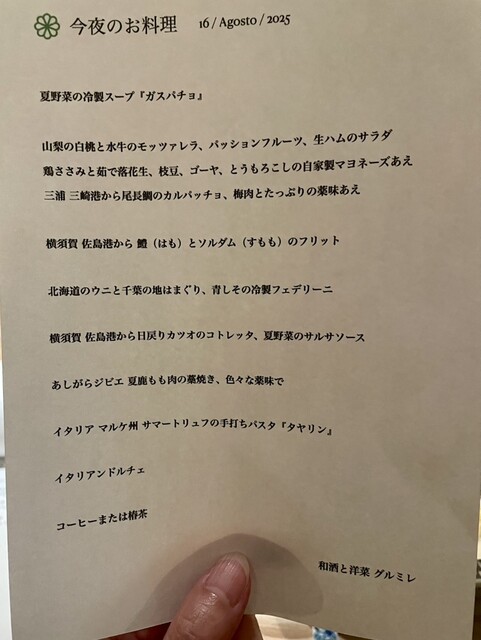 今夜のお料理 16 / Agosto / 2025
夏野菜の冷製スープ『ガスパチョ』
山梨の白桃と水牛のモッツァレラ、パッションフルーツ、生ハムのサラダ
鶏ささみと茹で落花生、枝豆、ゴーヤ、とうもろこしの自家製マヨネーズあえ
三浦 三崎港から尾長鯛のカルパッチョ、梅肉とたっぷりの薬味あえ
横須賀 佐島港から 鱧（はも）とソルダム（すもも）のフリット
北海道のウニと千葉の地はまぐり、青しその冷製フェデリーニ
横須賀 佐島港から日戻りカツオのコトレッタ、夏野菜のサルサソース
あしがらジビエ 夏鹿もも肉の藁焼き、色々な薬味で
イタリア マルケ州 サマートリュフの手打ちパスタ『タヤリン』
イタリアンドルチェ
コーヒーまたは椿茶
和酒と洋菜 グルミレ